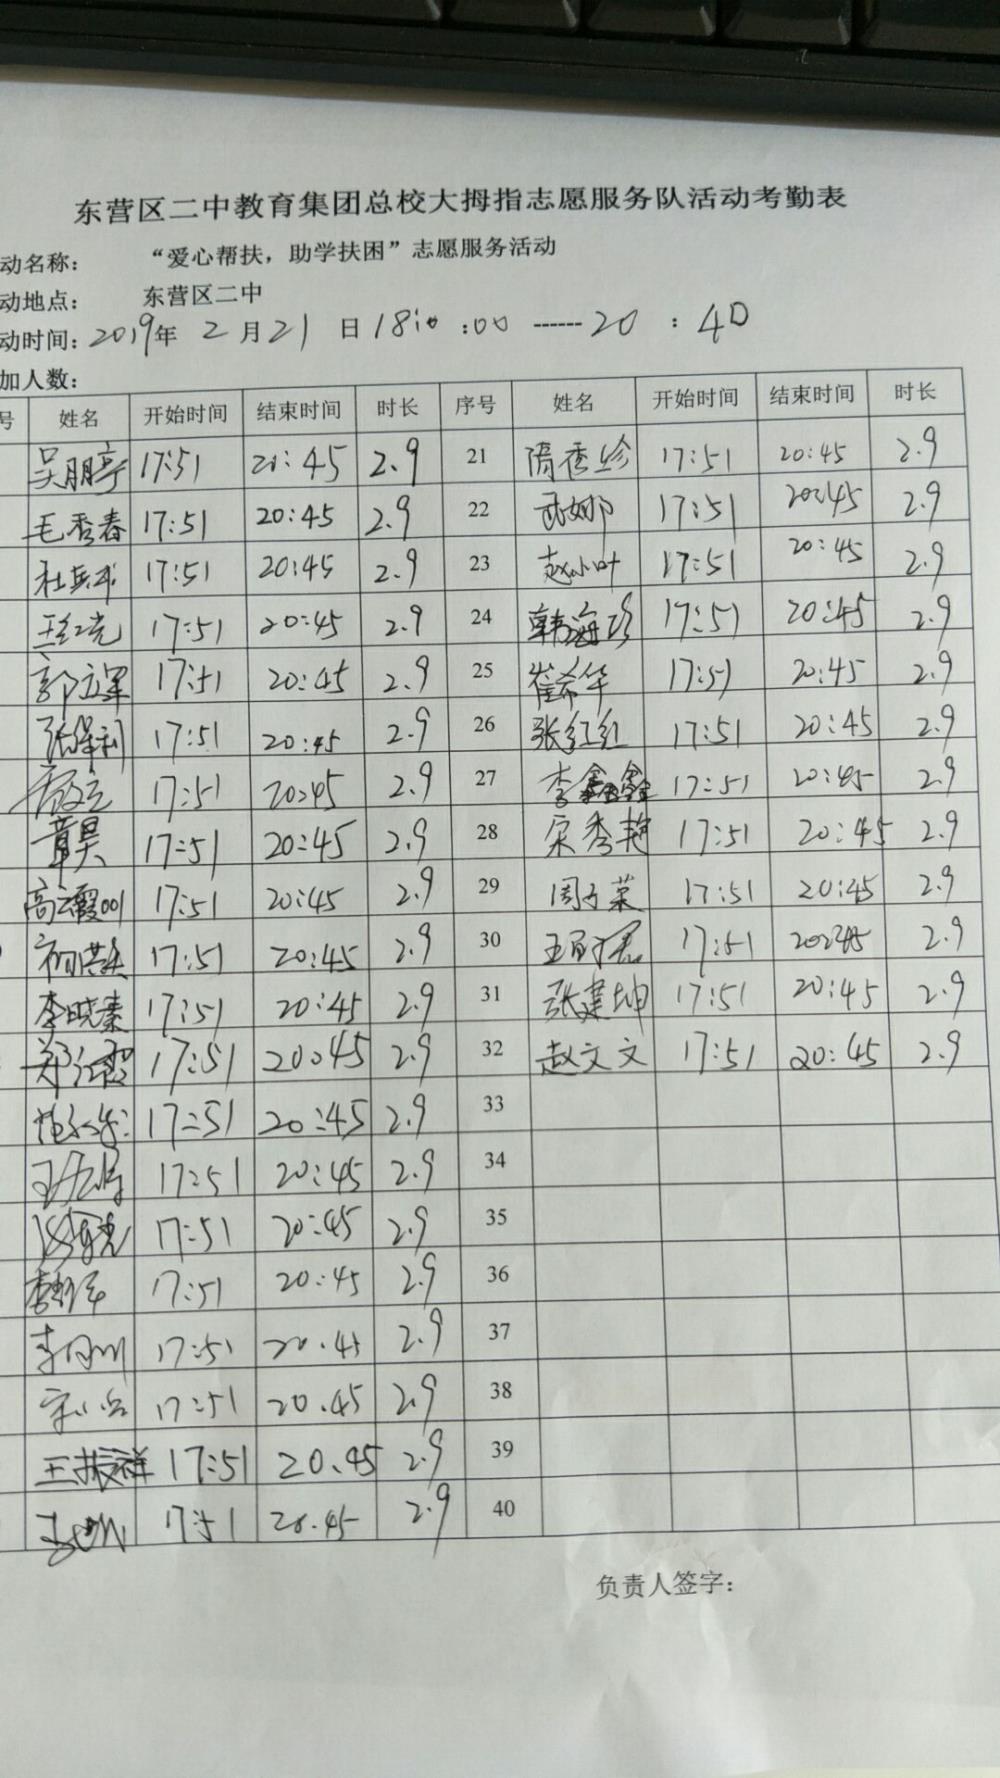 东营区二中教育集团总校大拇指志愿服务队活动考勤表
动名称： “爱心帮扶，助学扶困”志愿服务活动
动地点： 东营区二中
动时间：2019年 2 月 21 日 18:00 :00 ------ 20 : 40
加人数：
号 姓名 开始时间 结束时间 时长 序号 姓名 开始时间 结束时间 时长
吴鹏亭 17:51 20:45 2.9 21 隋香珍 17:51 20:45 2.9
毛秀春 17:51 20:45 2.9 22 武娜 17:51 20:45 2.9
杜兵成 17:51 20:45 2.9 23 赵小叶 17:51 20:45 2.9
王红光 17:51 20:45 2.9 24 韩海珍 17:51 20:45 2.9
郭立军 17:51 20:45 2.9 25 崔希华 17:51 20:45 2.9
张保利 17:51 20:45 2.9 26 张红红 17:51 20:45 2.9
17:51 20:45 2.9 27 李鑫鑫 17:51 20:45 2.9
章昊 17:51 20:45 2.9 28 宋秀艳 17:51 20:45 2.9
高云霞001 17:51 20:45 2.9 29 周子荣 17:51 20:45 2.9
17:51 20:45 2.9 30 17:51 20:45 2.9
李晓秦 17:51 20:45 2.9 31 张建坤 17:51 20:45 2.9
郑江霞 17:51 20:45 2.9 32 赵文文 17:51 20:45 2.9
17:51 20:45 2.9 33
17:51 20:45 2.9 34
17:51 20:45 2.9 35
17:51 20:45 2.9 36
17:51 20.45 2.9 37
17:51 20.45 2.9 38
王振祥 17:51 20.45 2.9 39
17:51 20.45 2.9 40
负责人签字：